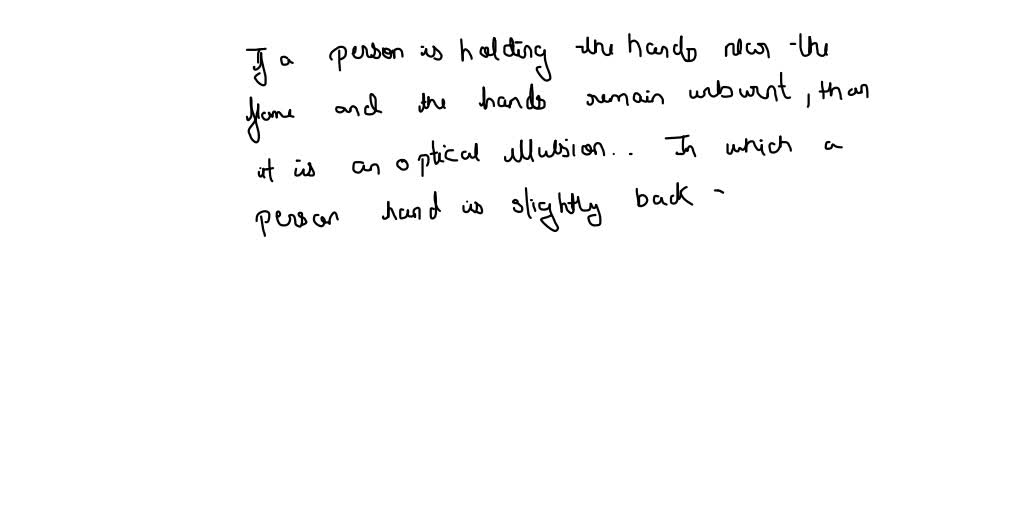 If a person is holding the hands near the
flame and the hands remain unburnt, than
it is an optical illusion.. In which a
person hand is slightly back -